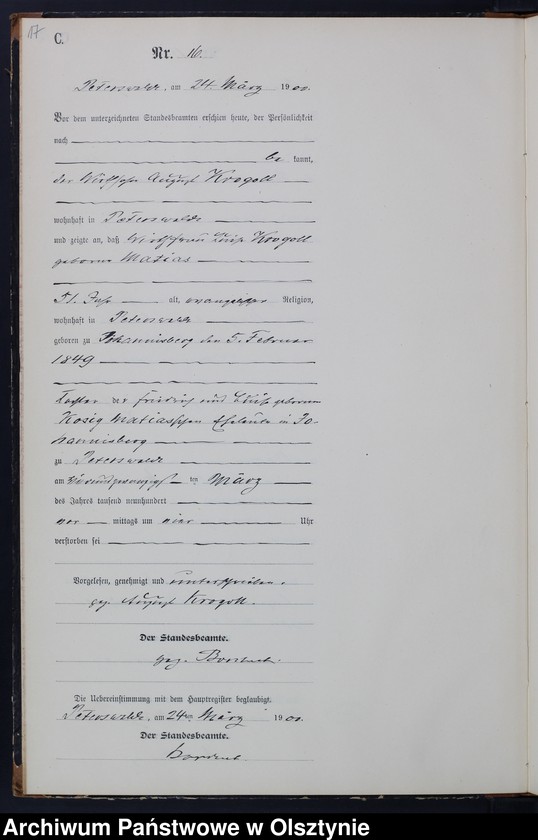 17
C.
Nr. 16.
Peterswalde, am 24. März 1900.
Vor dem unterzeichneten Standesbeamten erschien heute, der Persönlichkeit
nach
be kannt,
der August Krogoll
wohnhaft in Peterswalde
und zeigte an, daß Krogoll
geborne Matias
51 Jahr alt, evangelischer Religion,
wohnhaft in Peterswalde
geboren zu Johannisberg den 5. Februar
1849
Tochter der Friedrich und Luise geborenen
Kosig Matiasschen Eheleute in Jo-
hannisberg
zu Peterswalde
am vierundzwanzigsten März
des Jahres tausend neunhundert
vor mittags um vier Uhr
verstorben sei
Vorgelesen, genehmigt und unterschrieben.
gez. August Krogoll.
Der Standesbeamte.
gez.
Die Uebereinstimmung mit dem Hauptregister beglaubigt.
Peterswalde, am 24. März 1900.
Der Standesbeamte.
Archiwum Państwowe w Olsztynie